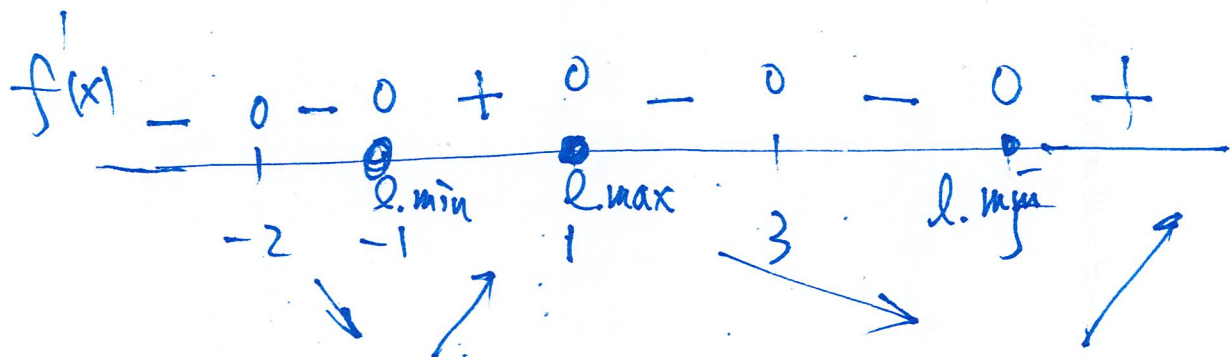 f'(x) − 0 − 0 + 0 − 0 − 0 +
l.min l.max l.min
-2 -1 1 3 5